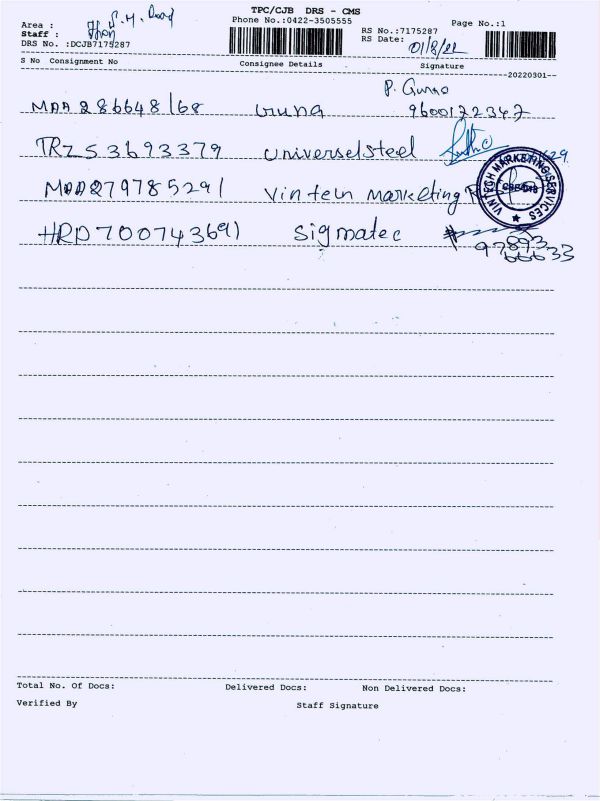 TPC/CJB DRS - CMS
Area : S.H. Road
Phone No.:0422-3505555
Page No.:1
Staff :
RS No.:7175287
DRS No. :DCJB7175287
RS Date: 01/8/22
S No Consignment No
Consignee Details
Signature
20220301
P. Guna
MAA 286648168 Guna 9600172347
TRZ53693379 Universelsteel
MAA279785291 Vintech marketing
VINTECH MARKETING SERVICES
CBE-018
HRD700743691 Sigmatec
97893
66633
Total No. Of Docs:
Delivered Docs:
Non Delivered Docs:
Verified By
Staff Signature